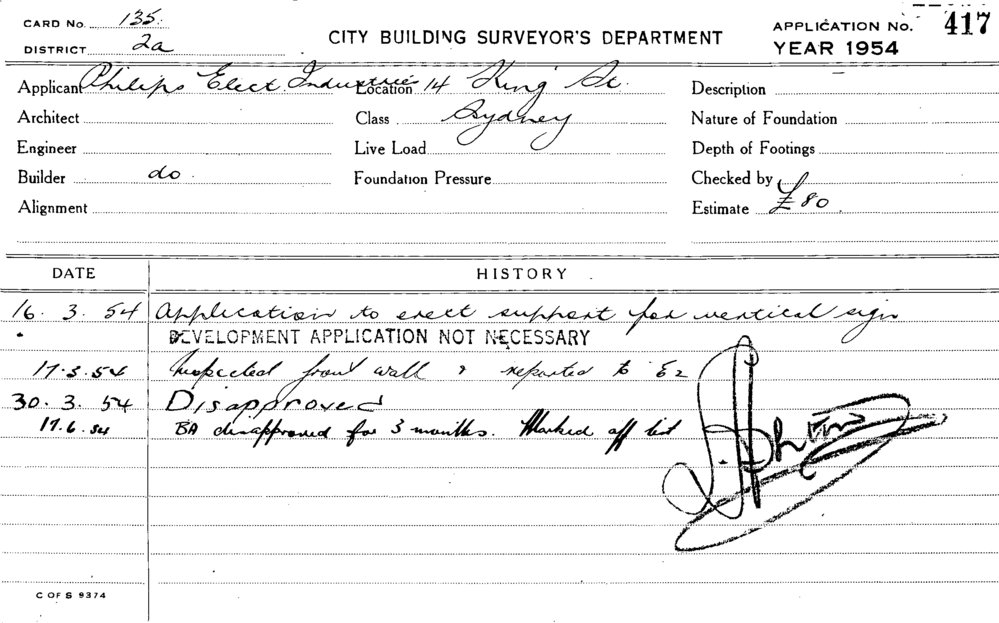 CARD No. 135.
DISTRICT 2a
CITY BUILDING SURVEYOR'S DEPARTMENT
APPLICATION No. 417
YEAR 1954
Applicant Philips Elect. Industries Location 14 King St. Description
Architect Class Sydney Nature of Foundation
Engineer Live Load Depth of Footings
Builder do Foundation Pressure Checked by
Alignment Estimate £80.
DATE HISTORY
16. 3. 54 Application to erect support for vertical sign
DEVELOPMENT APPLICATION NOT NECESSARY
17.3.54 Inspected front wall & reported to
30. 3. 54 Disapproved
17.6.54 BA disapproved for 3 months. Marked off list
C OF S 9374